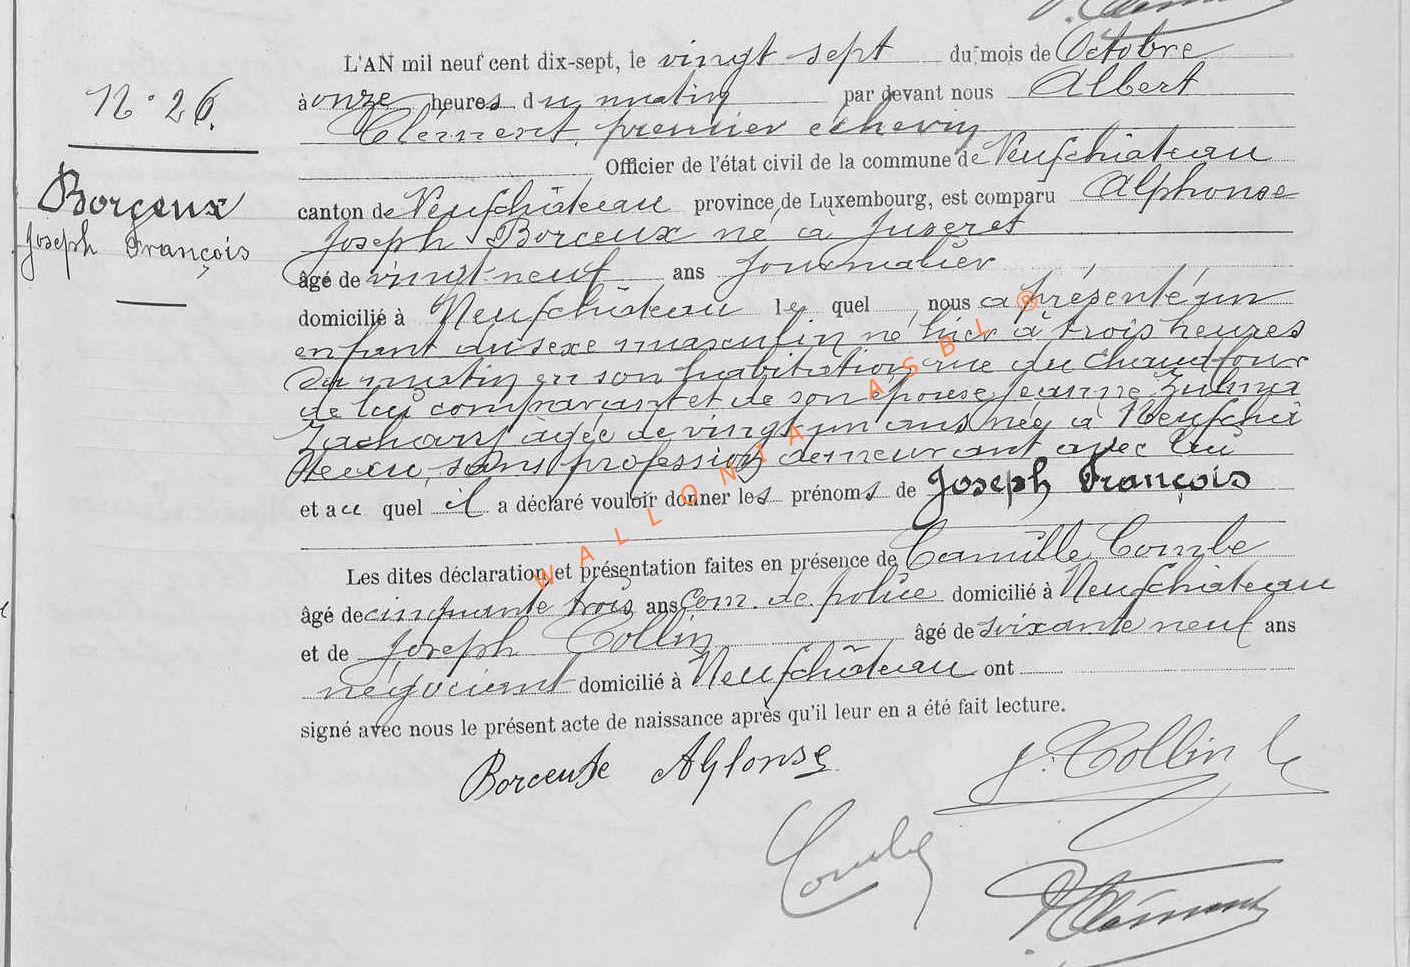 L'AN mil neuf cent dix-sept, le vingt sept du mois de Octobre
N° 26.
à onze heures du matin par devant nous Albert
Clément, premier échevin
Officier de l'état civil de la commune de Neufchâteau
Borçeux
Joseph François
canton de Neufchâteau province de Luxembourg, est comparu Alphonse
Joseph Borceux né à Juseret
âgé de vingt-neuf ans journalier
domicilié à Neufchâteau le quel nous a présenté un
enfant du sexe masculin né hier à trois heures
du matin en son habitation rue du Chaudfour
de lui comparant et de son épouse Jeanne Zulma
Zachary âgée de vingt un ans née à Neufchâ
teau, sans profession demeurant avec lui
et au quel il a déclaré vouloir donner les prénoms de Joseph François
Les dites déclaration et présentation faites en présence de Camille Combe
âgé de cinquante trois ans Com. de police domicilié à Neufchâteau
et de Joseph Collin âgé de soixante neuf ans
négociant domicilié à Neufchâteau ont
signé avec nous le présent acte de naissance après qu'il leur en a été fait lecture.
Borceux Alfonse
J. Collin
Combe
Clément
WALLONIA ASBL ®